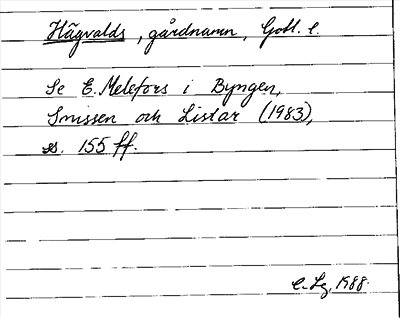 Hägvalds, gårdnamn, Gotl. l.
Se E. Melefors i Byngen,
Snissen och Listar (1983),
s. 155 ff.
C. Lg, 1988.